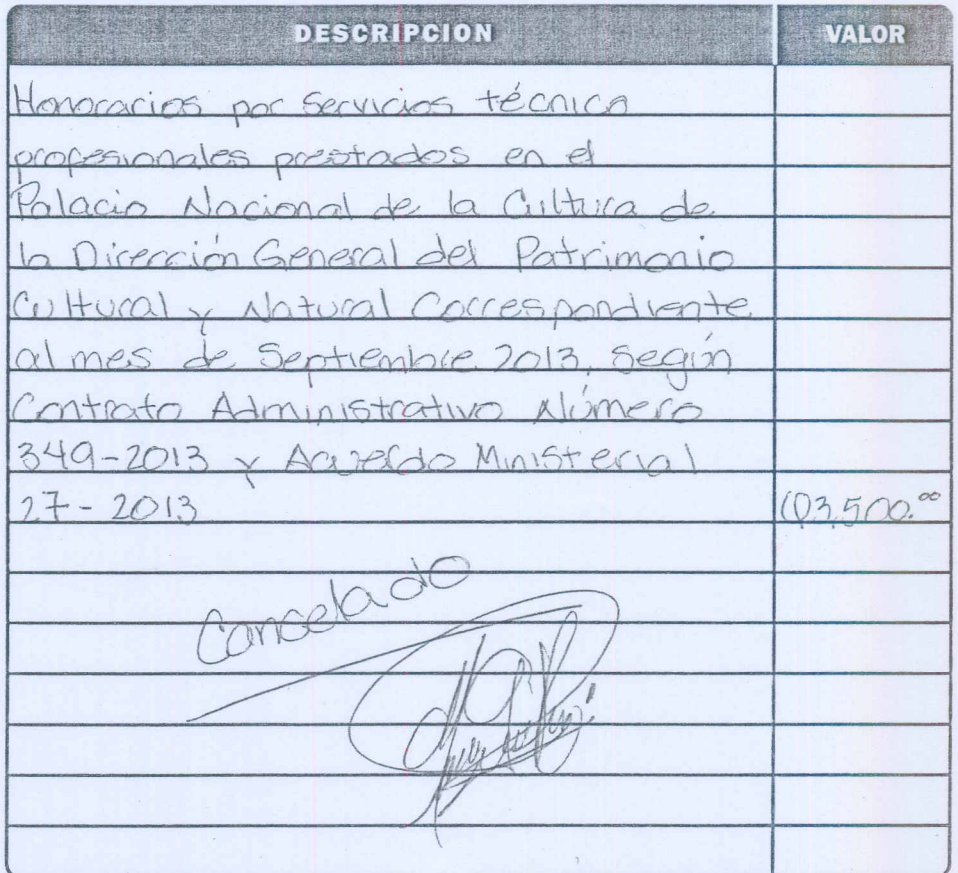 DESCRIPCION VALOR
Honorarios por Servicios técnico
profesionales prestados en el
Palacio Nacional de la Cultura de
la Dirección General del Patrimonio
Cultural y Natural Correspondiente
al mes de Septiembre 2013, Según
Contrato Administrativo Número
349-2013 y Acuerdo Ministerial
27-2013 Q3,500.00
Cancelado